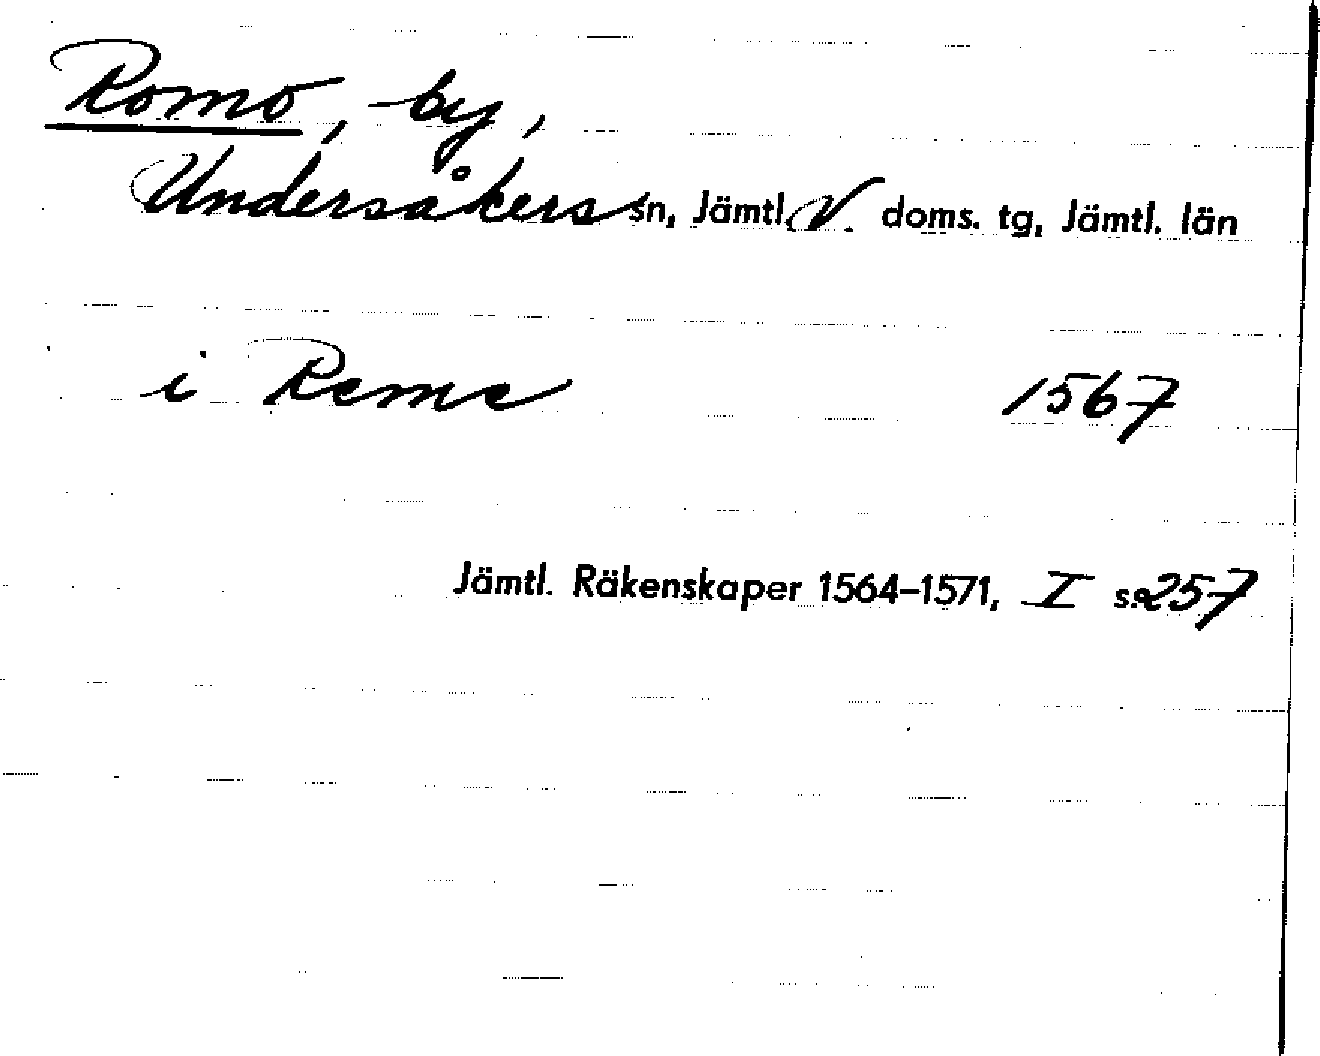 Romo, by,
Undersåkers sn, Jämtl. V. doms. tg, Jämtl. län
i Reme 1567
Jämtl. Räkenskaper 1564–1571, I s. 257